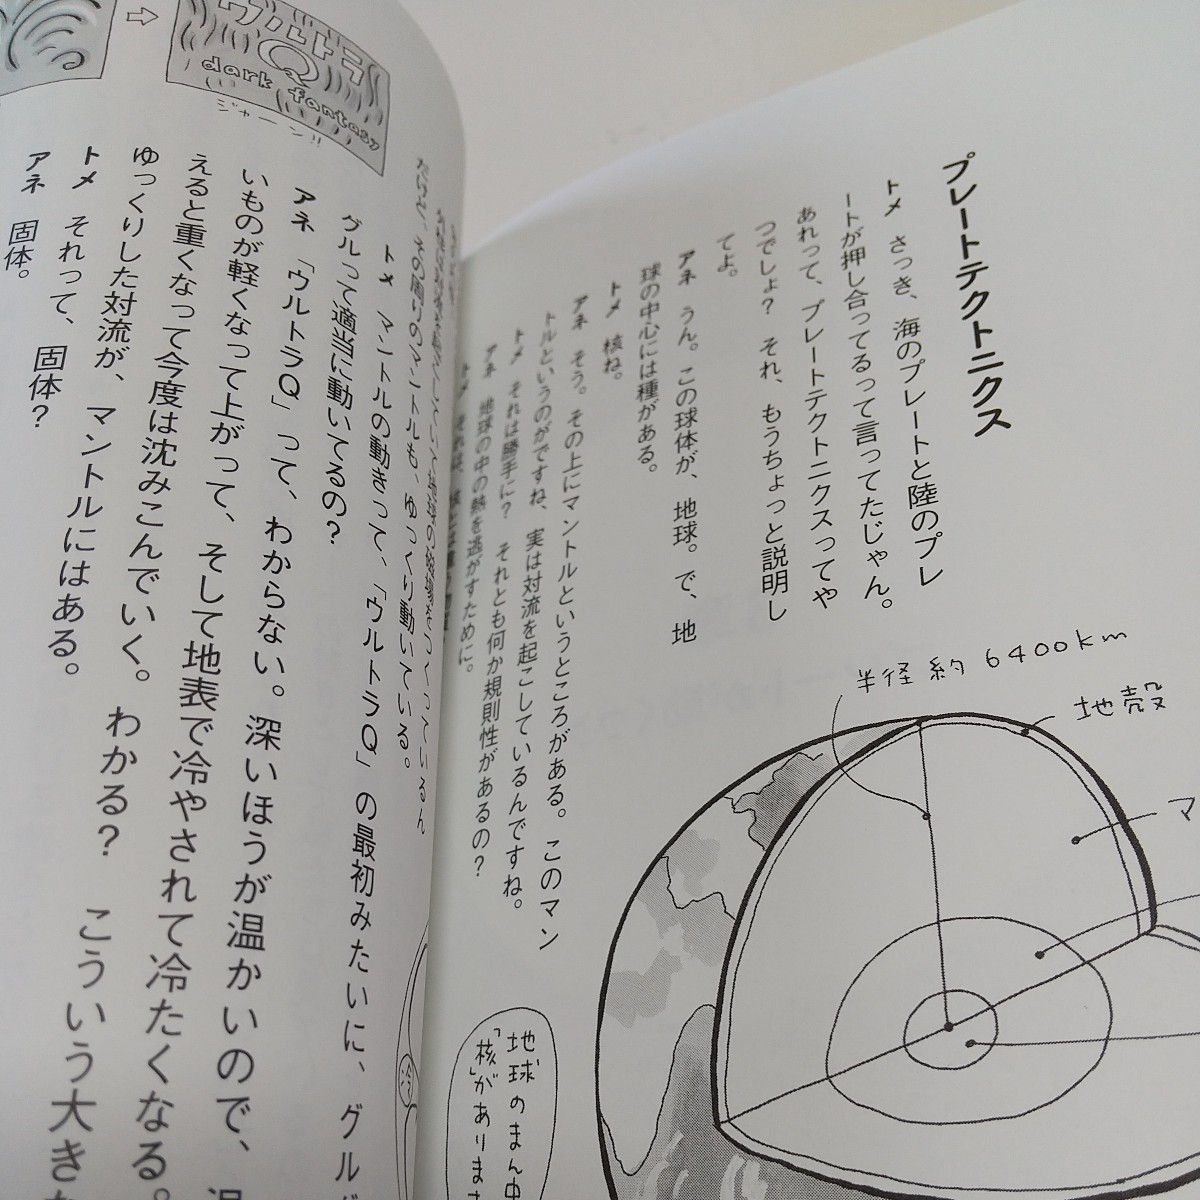 プレートテクトニクス
トメ さっき、海のプレートと陸のプレ
ートが押し合ってるって言ってたじゃん。
あれって、プレートテクトニクスってや
つでしょ? それ、もうちょっと説明し
てよ。
アネ うん。この球体が、地球。で、地
球の中心には種がある。
トメ 核ね。
アネ そう。その上にマントルというところがある。このマン
トルというのがですね、実は対流を起こしているんですね。
トメ それは勝手に? それとも何か規則性があるの?
アネ 地球の中の熱を逃がすために。
半径約6400km
地殻
マ
地球のまん中
「核」がありま
だけど、その周りのマントルも、ゆっくり動いている。
トメ マントルの動きって、「ウルトラQ」の最初みたいに、グル
グルって適当に動いてるの?
アネ 「ウルトラQ」って、わからない。深いほうが温かいので、
いものが軽くなって上がって、そして地表で冷やされて冷たくなる。
えると重くなって今度は沈みこんでいく。わかる? こういう大き
ゆっくりした対流が、マントルにはある。
トメ それって、固体?
アネ 固体。
ウルトラ
Q
dark fantasy
ジャーン!!
冷